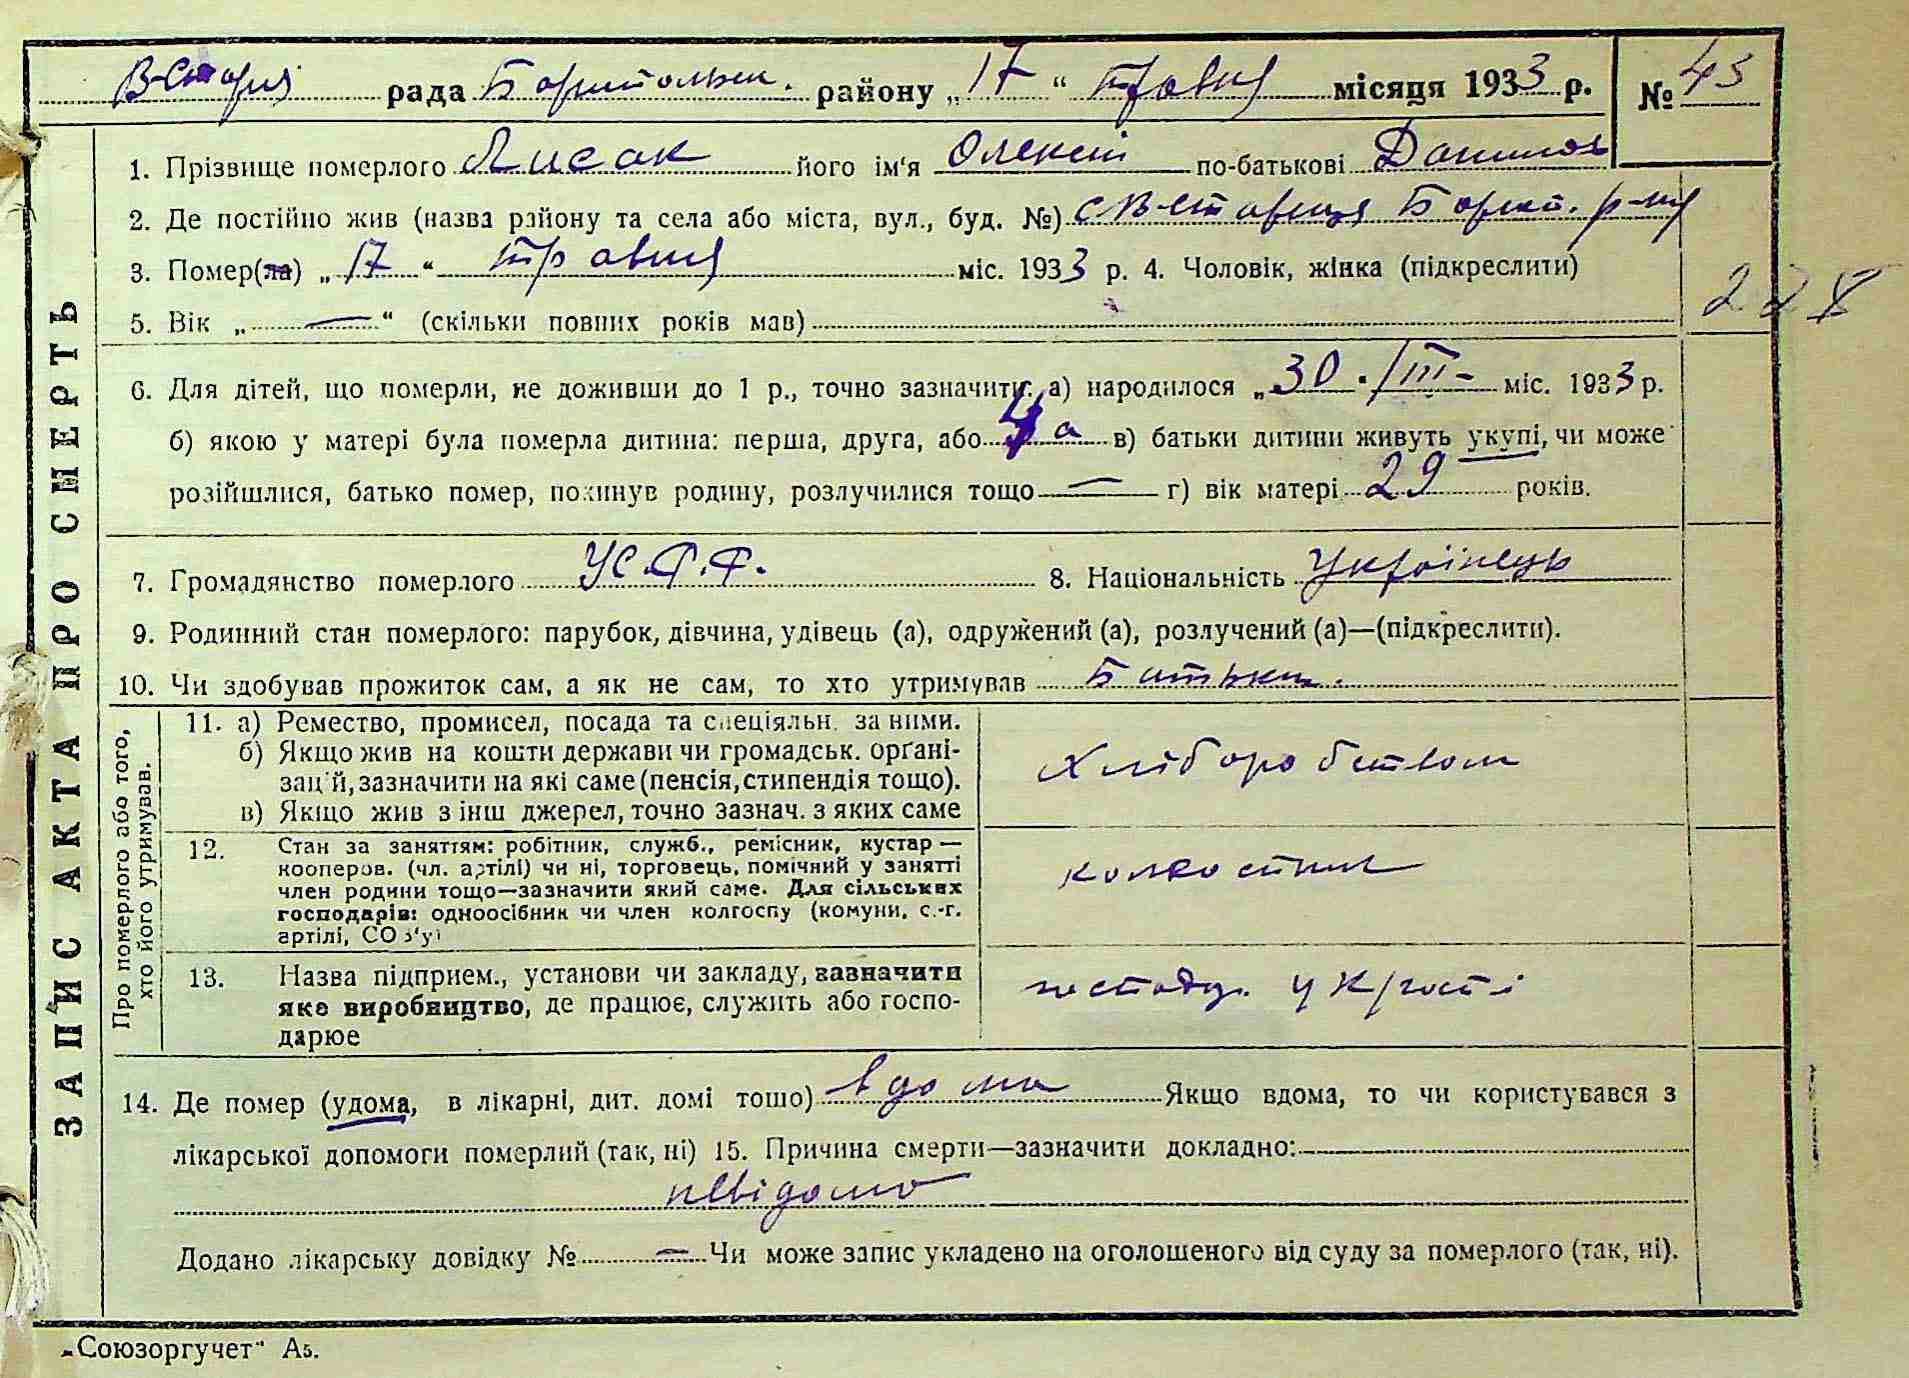 В-Стариц рада Бориспольськ. району „17" травня місяця 1933 р. № 43
1. Прізвище померлого Лисак його ім'я Олексій по-батькові Данилов
2. Де постійно жив (назва району та села або міста, вул., буд. №) с В-Стариця Борисп. р-ну
3. Помер(ла) „17" травня міс. 1933 р. 4. Чоловік, жінка (підкреслити)
5. Вік „ — " (скільки повних років мав)
6. Для дітей, що померли, не доживши до 1 р., точно зазначити: а) народилося „30. III- міс. 1933 р.
б) якою у матері була померла дитина: перша, друга, або а в) батьки дитини живуть укупі, чи може
розійшлися, батько помер, покинув родину, розлучилися тощо — г) вік матері 29 років.
7. Громадянство померлого УС.Р.Р. 8. Національність Українець
9. Родинний стан померлого: парубок, дівчина, удівець (а), одружений (а), розлучений (а)—(підкреслити).
10. Чи здобував прожиток сам, а як не сам, то хто утримував Батьки.
Про померлого або того,
хто його утримував.
11. а) Ремество, промисел, посада та спеціяльн. за ними.
б) Якщо жив на кошти держави чи громадськ. орґані-
зацій, зазначити на які саме (пенсія, стипендія тощо).
в) Якщо жив з інш джерел, точно зазнач. з яких саме
Хліборобством
12. Стан за заняттям: робітник, служб., ремісник, кустар—
кооперов. (чл. артілі) чи ні, торговець, помічний у занятті
член родини тощо—зазначити який саме. Для сільських
господарів: одноосібник чи член колгоспу (комуни, с.-г.
артілі, СОЗ'у)
колгоспник
13. Назва підприєм., установи чи закладу, зазначити
яке виробництво, де працює, служить або госпо-
дарює
господар. у
14. Де помер (удома, в лікарні, дит. домі тощо) вдома Якщо вдома, то чи користувався з
лікарської допомоги померлий (так, ні) 15. Причина смерти—зазначити докладно:
невідомо
Додано лікарську довідку № — Чи може запис укладено на оголошеного від суду за померлого (так, ні).
ЗАПИС АКТА ПРО СМЕРТЬ
„Союзоргучет" А5.